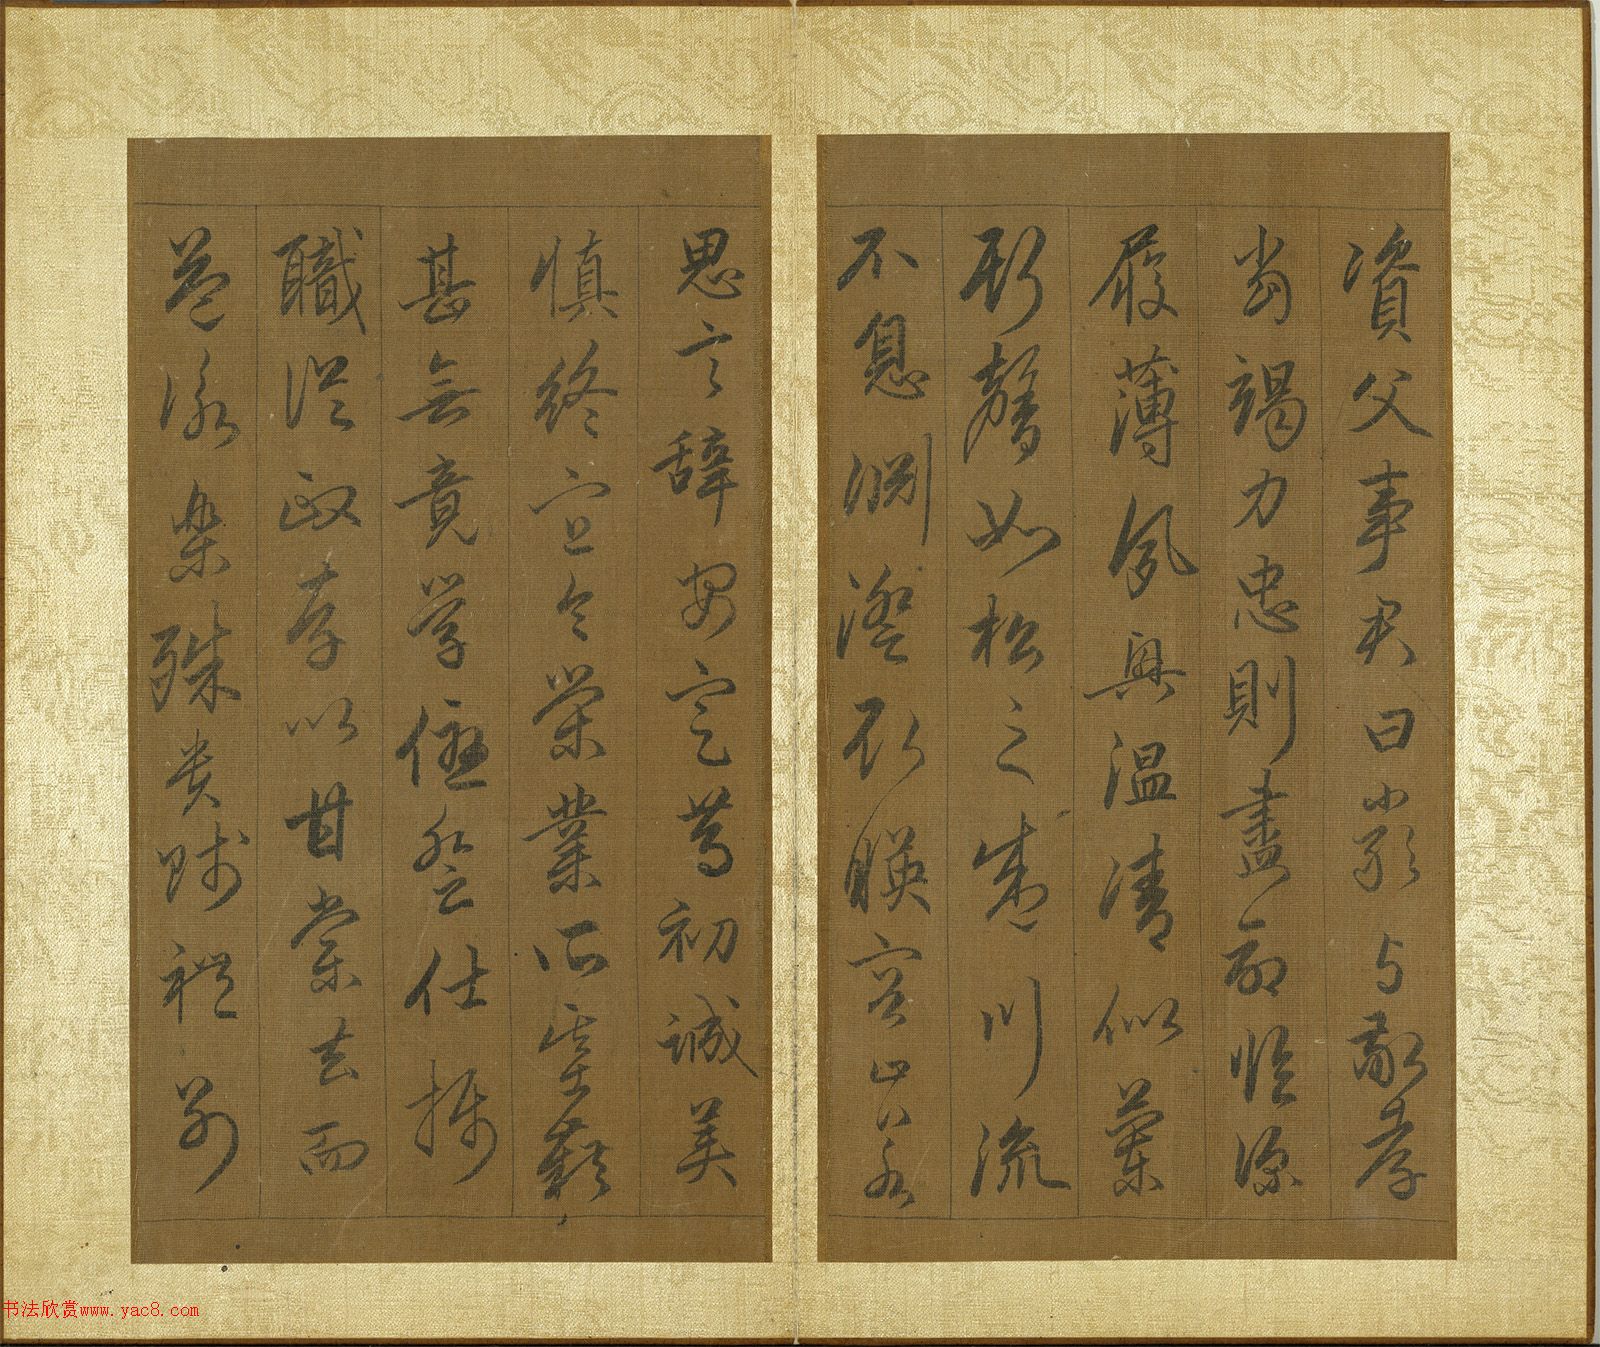 資父事君曰嚴与敬孝
當竭力忠則盡命臨深
履薄夙興温清似蘭
斯馨如松之盛川流
不息淵澄取暎容止若
思言辭安定篤初誠美
慎終宜令榮業所基藉
甚無竟學優登仕攝
職從政存以甘棠去而
益詠樂殊貴賤禮別
书法欣赏www.yac8.com